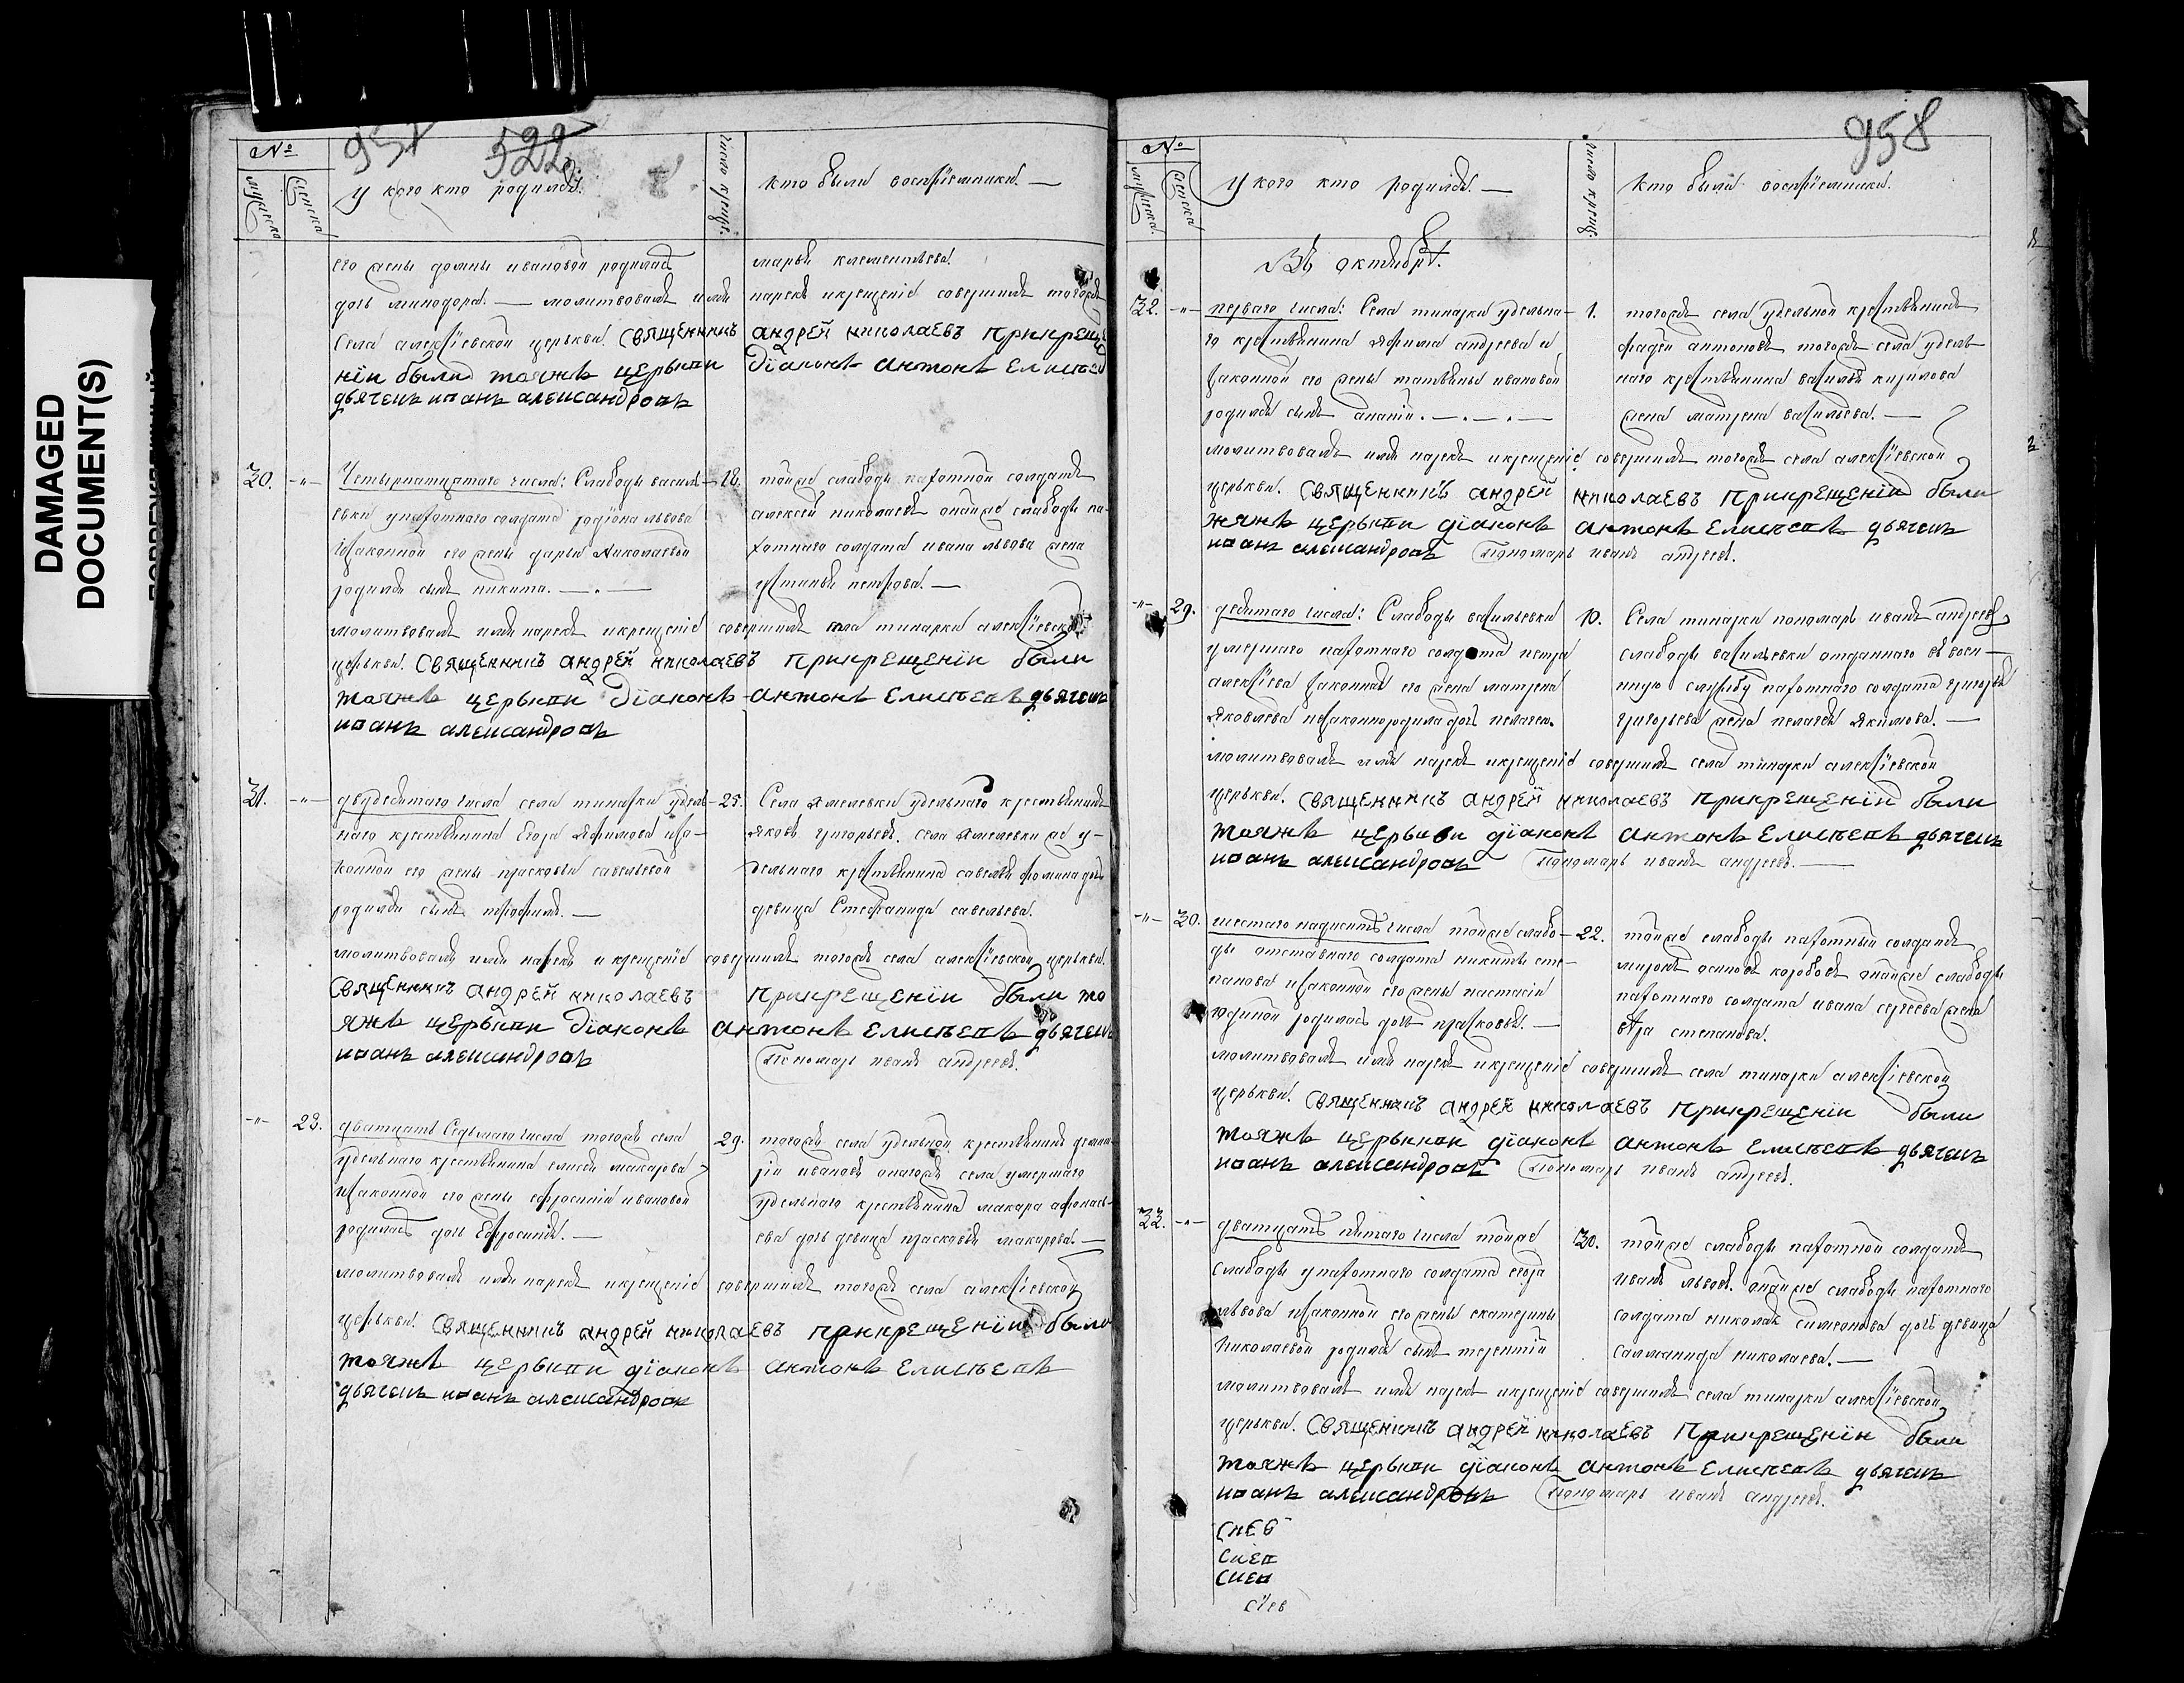 DAMAGED
DOCUMENT(S)
957 522
№
мужеска
женска
у кого кто родился.
число крещ:
кто были восприемники. —
его жены домны ивановой родилась
дочь минодора. — молитвовалъ имя
Села алексіевской церькви. Священникъ
ніи были тояжъ церькви
дьячекъ иоанъ александровъ
марья клементьева.
нарекъ икрещеніе совершилъ тогожъ
андрей николаевъ Прикреще
Діаконъ антонъ Елисеевъ
30. -"- Четырнатцатого числа: Слабоды василь- 18.
евки упахотного солдата родіона львова
изаконной его жены дарьи Николаевой
родился сынъ никита. —.—
тойже слабоды пахотной солдатъ
алексей николаевъ итойже слабоды па-
хотного солдата ивана львова жена
устинья петрова. —
молитвовалъ имя нарекъ икрещеніе совершилъ села тинарки алексіевской
церькви. Священникъ андрей николаевъ прикрещеніи были
тояжъ церькви Діаконъ антонъ Елисеевъ дьячекъ
иоанъ александровъ
31. -"- двудесятаго числа села тинарки удель- 25.
наго крестьянина Егора Яфимова иза-
конной его жены прасковьи савельевой
родился сынъ трофимъ. —
Села Амелевки удельнаго крестьянинъ
яковъ григорьевъ. села Амелевки же у-
дельнаго крестьянина савелья фомина дочь
девица Стефанида савельева.
молитвовалъ имя нарекъ икрещеніе совершилъ тогожъ села алексіевской церькви.
Священникъ андрей николаевъ Прикрещеніи были то
яжъ церькви Діаконъ антонъ Елисеевъ дьячекъ
иоанъ александровъ Пономарь иванъ андреевъ.
-"- 28. дватцать Седьмаго числа тогожъ села 29.
удельнаго крестьянина елисея макарова
изаконной его жены ефросиніи ивановой
родилась дочь Ефросинья. —
тогожъ села удельной крестьянинъ
ивановъ итогожъ села умершаго
удельнаго крестьянина макара афонась-
ева дочь девица прасковья макарова. —
молитвовалъ имя нарекъ икрещеніе совершилъ тогожъ села алексіевской
церькви. Священникъ андрей николаевъ прикрещеніи были
тояжъ церькви діаконъ антонъ Елисеевъ
дьячекъ иоанъ александровъ
958
№
мужеска.
женска
у кого кто родился. —
число крещ:
кто были восприемники.
Въ октябрѣ.
32. -"- перваго числа: Села тинарки удельна- 1.
го крестьянина Яфима андреева и
законной его жены татьяны ивановой
родился сынъ ананій. —.—.—
тогожъ села удельной крестьянинъ
фадей антоновъ тогожъ села удель
наго крестьянина василья кирилова
жена матрена васильева. —
молитвовалъ имя нарекъ икрещеніе совершилъ тогожъ села алексіевской
церькви. Священникъ андрей николаевъ Прикрещеніи были
жяжъ церькви діаконъ антонъ Елисеевъ дьячекъ
иоанъ александровъ Пономарь иванъ андреевъ.
-"- 29. девятаго числа: Слабоды васильевки 10.
умершаго пахотнаго солдата петра
алексіева законная его жена матрена
Яковлева незаконнородила дочь пелагею.
Села тинарки пономарь иванъ андреевъ
слабоды васильевки отданнаго въ воен-
ную службу пахотнаго солдата григорья
григорьева жена пелагея Якимова. —
молитвовалъ имя нарекъ икрещеніе совершилъ села тинарки алексіевской
церькви. Священникъ андрей николаевъ прикрещеніи были
тояжъ церькви діаконъ антонъ Елисеевъ дьячекъ
иоанъ александровъ Пономарь иванъ андреевъ. —
-"- 30. шестаго надесеть числа тойже слабо- 22.
ды отставнаго солдата никиты сте-
панова изаконной его жены настасіи
родилась дочь прасковья. —
тойже слабоды пахотный солдатъ
миронъ осиповъ коробовъ итойже слабоды
пахотнаго солдата ивана сергеева жена
вѣра степанова.
молитвовалъ имя нарекъ икрещеніе совершилъ села тинарки алексіевской
церькви. Священникъ андрей николаевъ прикрещеніи были
тояжъ церькви діаконъ антонъ Елисеевъ дьячекъ
иоанъ александровъ Пономарь иванъ андреевъ.
33. -"- дватцать пятаго числа тойже 30.
Слабоды упахотнаго солдата егора
львова изаконной его жены екатерины
Николаевой родился сынъ терентій
тойже слабоды пахотной солдатъ
иванъ львовъ. итойже слабоды пахотнаго
солдата николая симеонова дочь девица
саломанида николаева. —
молитвовалъ имя нарекъ икрещеніе совершилъ села тинарки алексіевской
церькви. Священникъ андрей николаевъ Прикрещеніи были
тояжъ церькви діаконъ антонъ Елисеевъ дьячекъ
иоанъ александровъ Пономарь иванъ андреевъ.